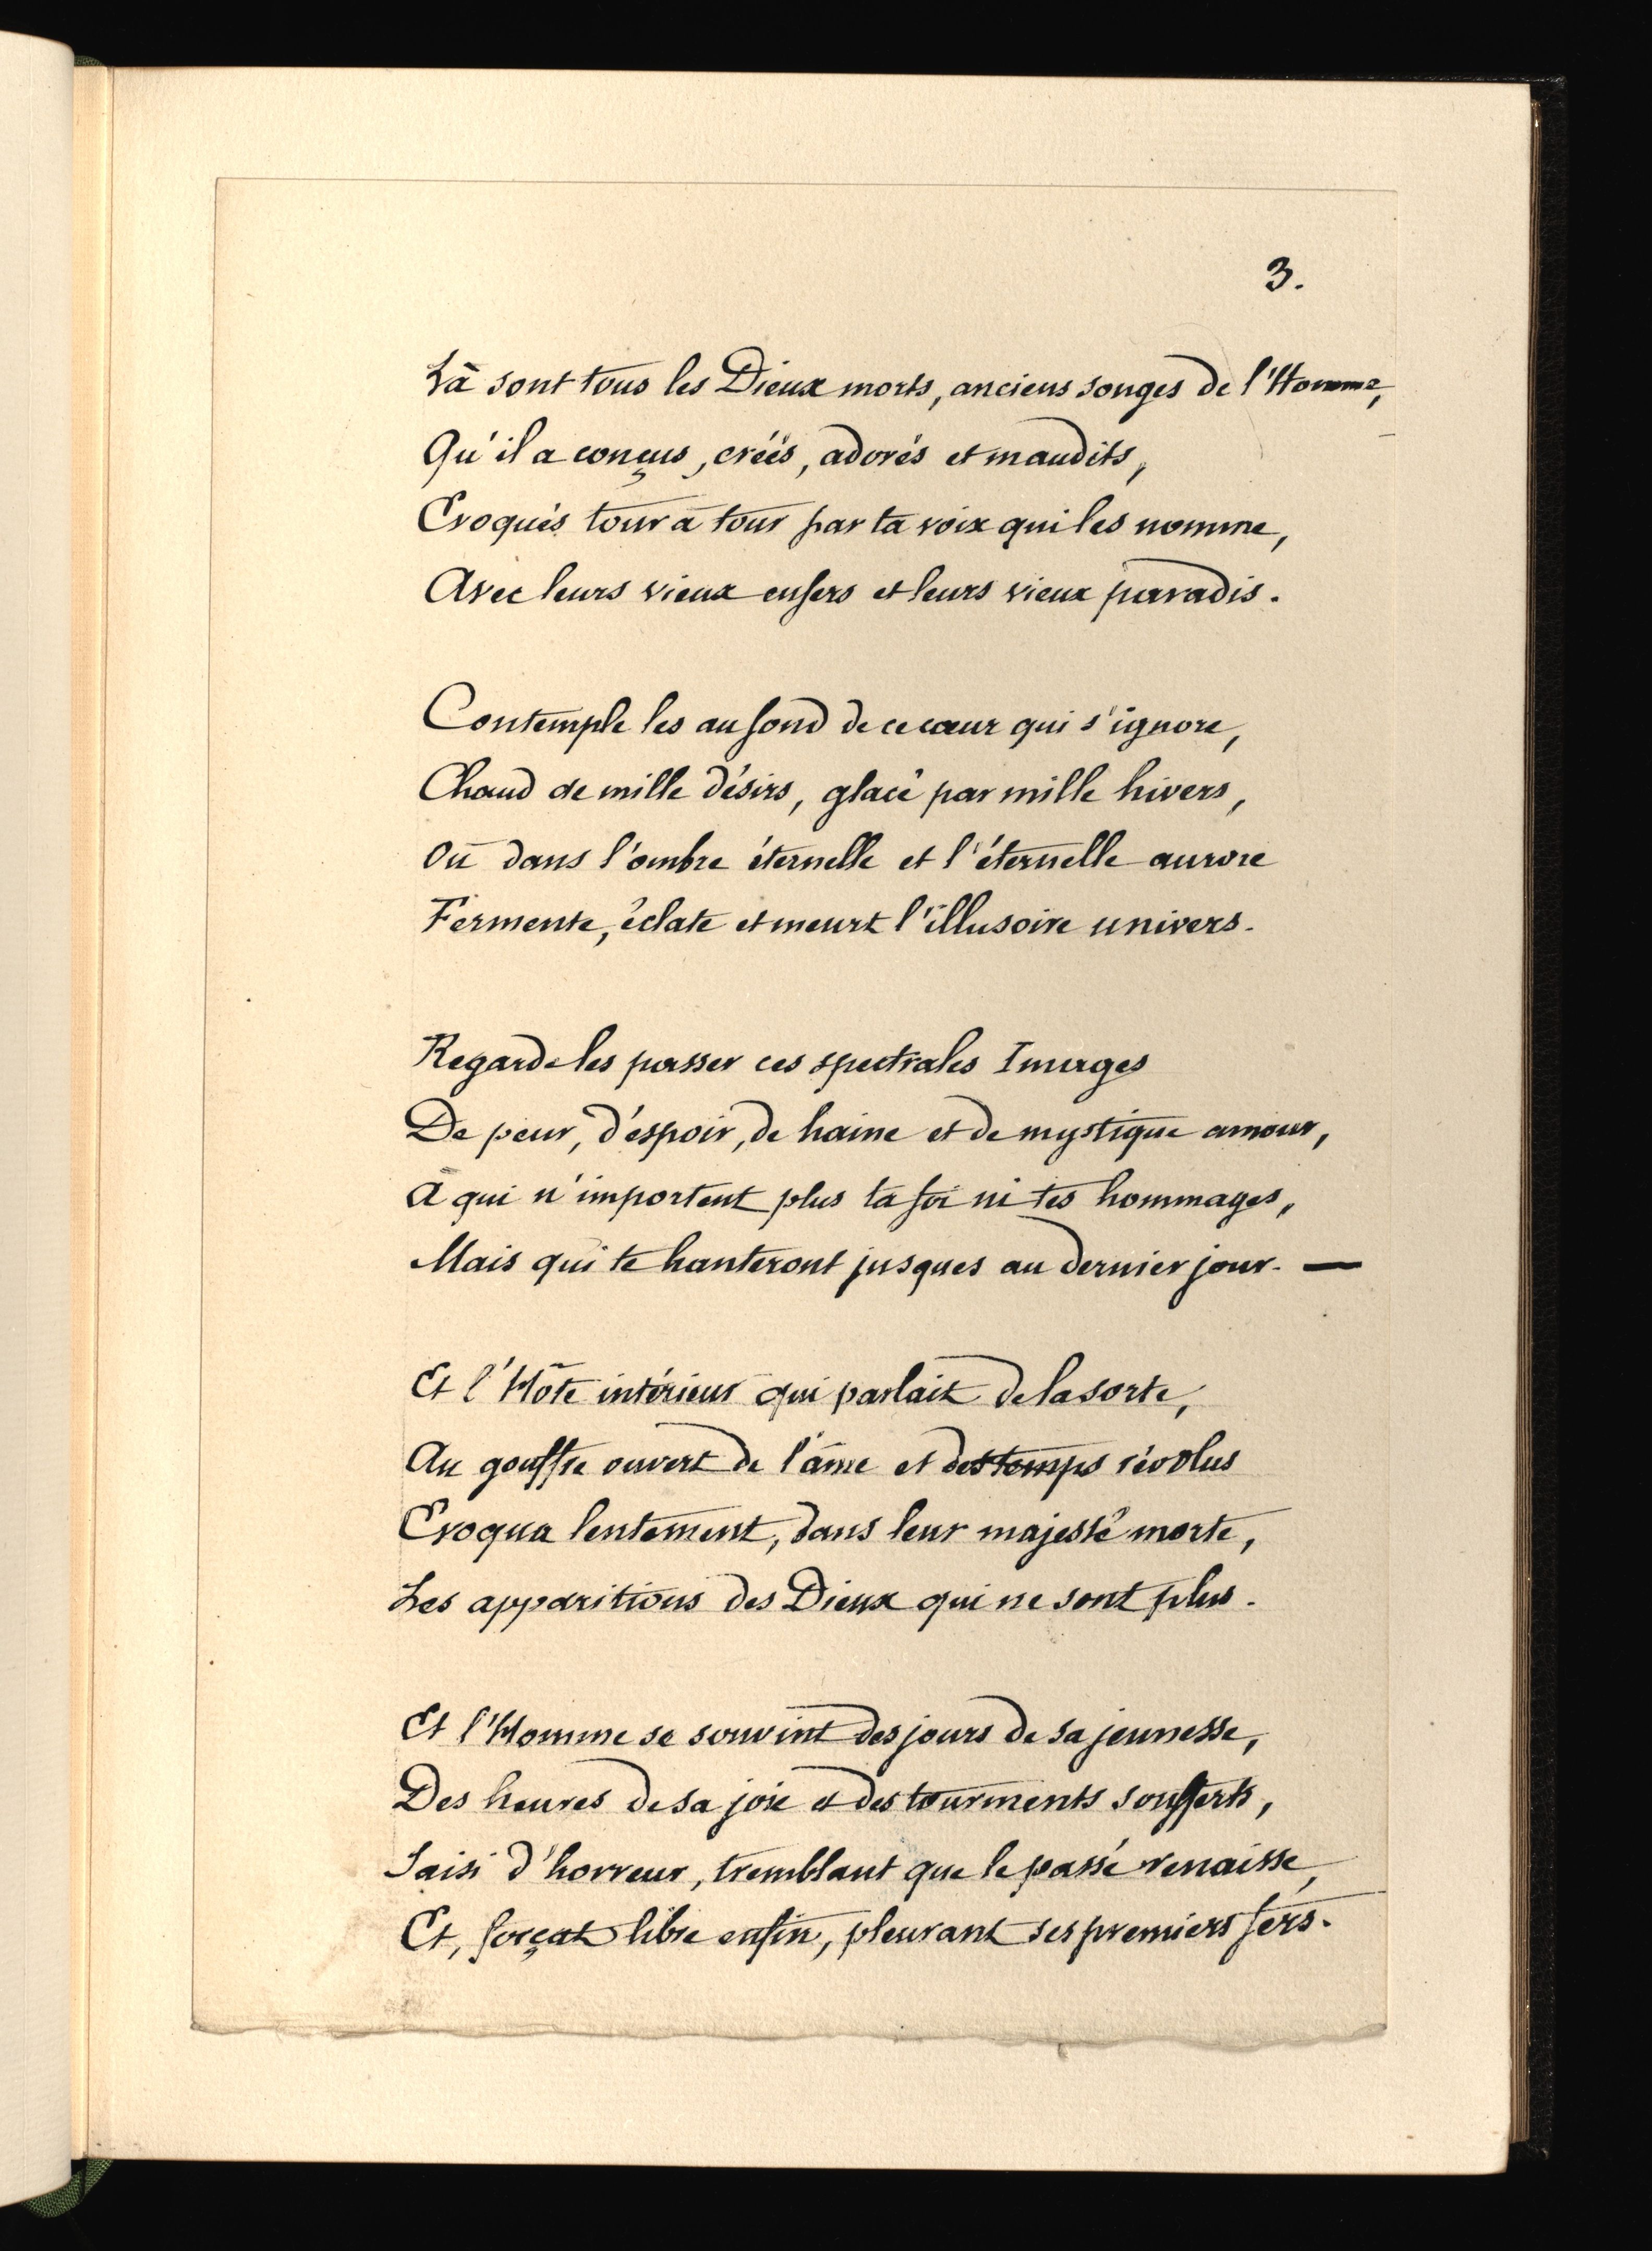 3.
Là sont tous les Dieux morts, anciens songes de l'Homme,
Qu'il a conçus, créés, adorés et maudits,
Evoqués tour à tour par ta voix qui les nomme,
Avec leurs vieux enfers et leurs vieux paradis.
Contemple les au fond de ce cœur qui s'ignore,
Chaud de mille désirs, glacé par mille hivers,
Où dans l'ombre éternelle et l'éternelle aurore
Fermente, éclate et meurt l'illusoire univers.
Regarde les passer ces spectrales Images
De peur, d'espoir, de haine et de mystique amour,
À qui n'importent plus ta foi ni tes hommages,
Mais qui te hanteront jusques au dernier jour. —
Et l'Hôte intérieur qui parlait de la sorte,
Au gouffre ouvert de l'âme et des temps révolus
Evoqua lentement, dans leur majesté morte,
Les apparitions des Dieux qui ne sont plus.
Et l'Homme se souvint des jours de sa jeunesse,
Des heures de sa joie et des tourments soufferts,
Saisi d'horreur, tremblant que le passé renaisse,
Et, forçat libre enfin, pleurant ses premiers fers.